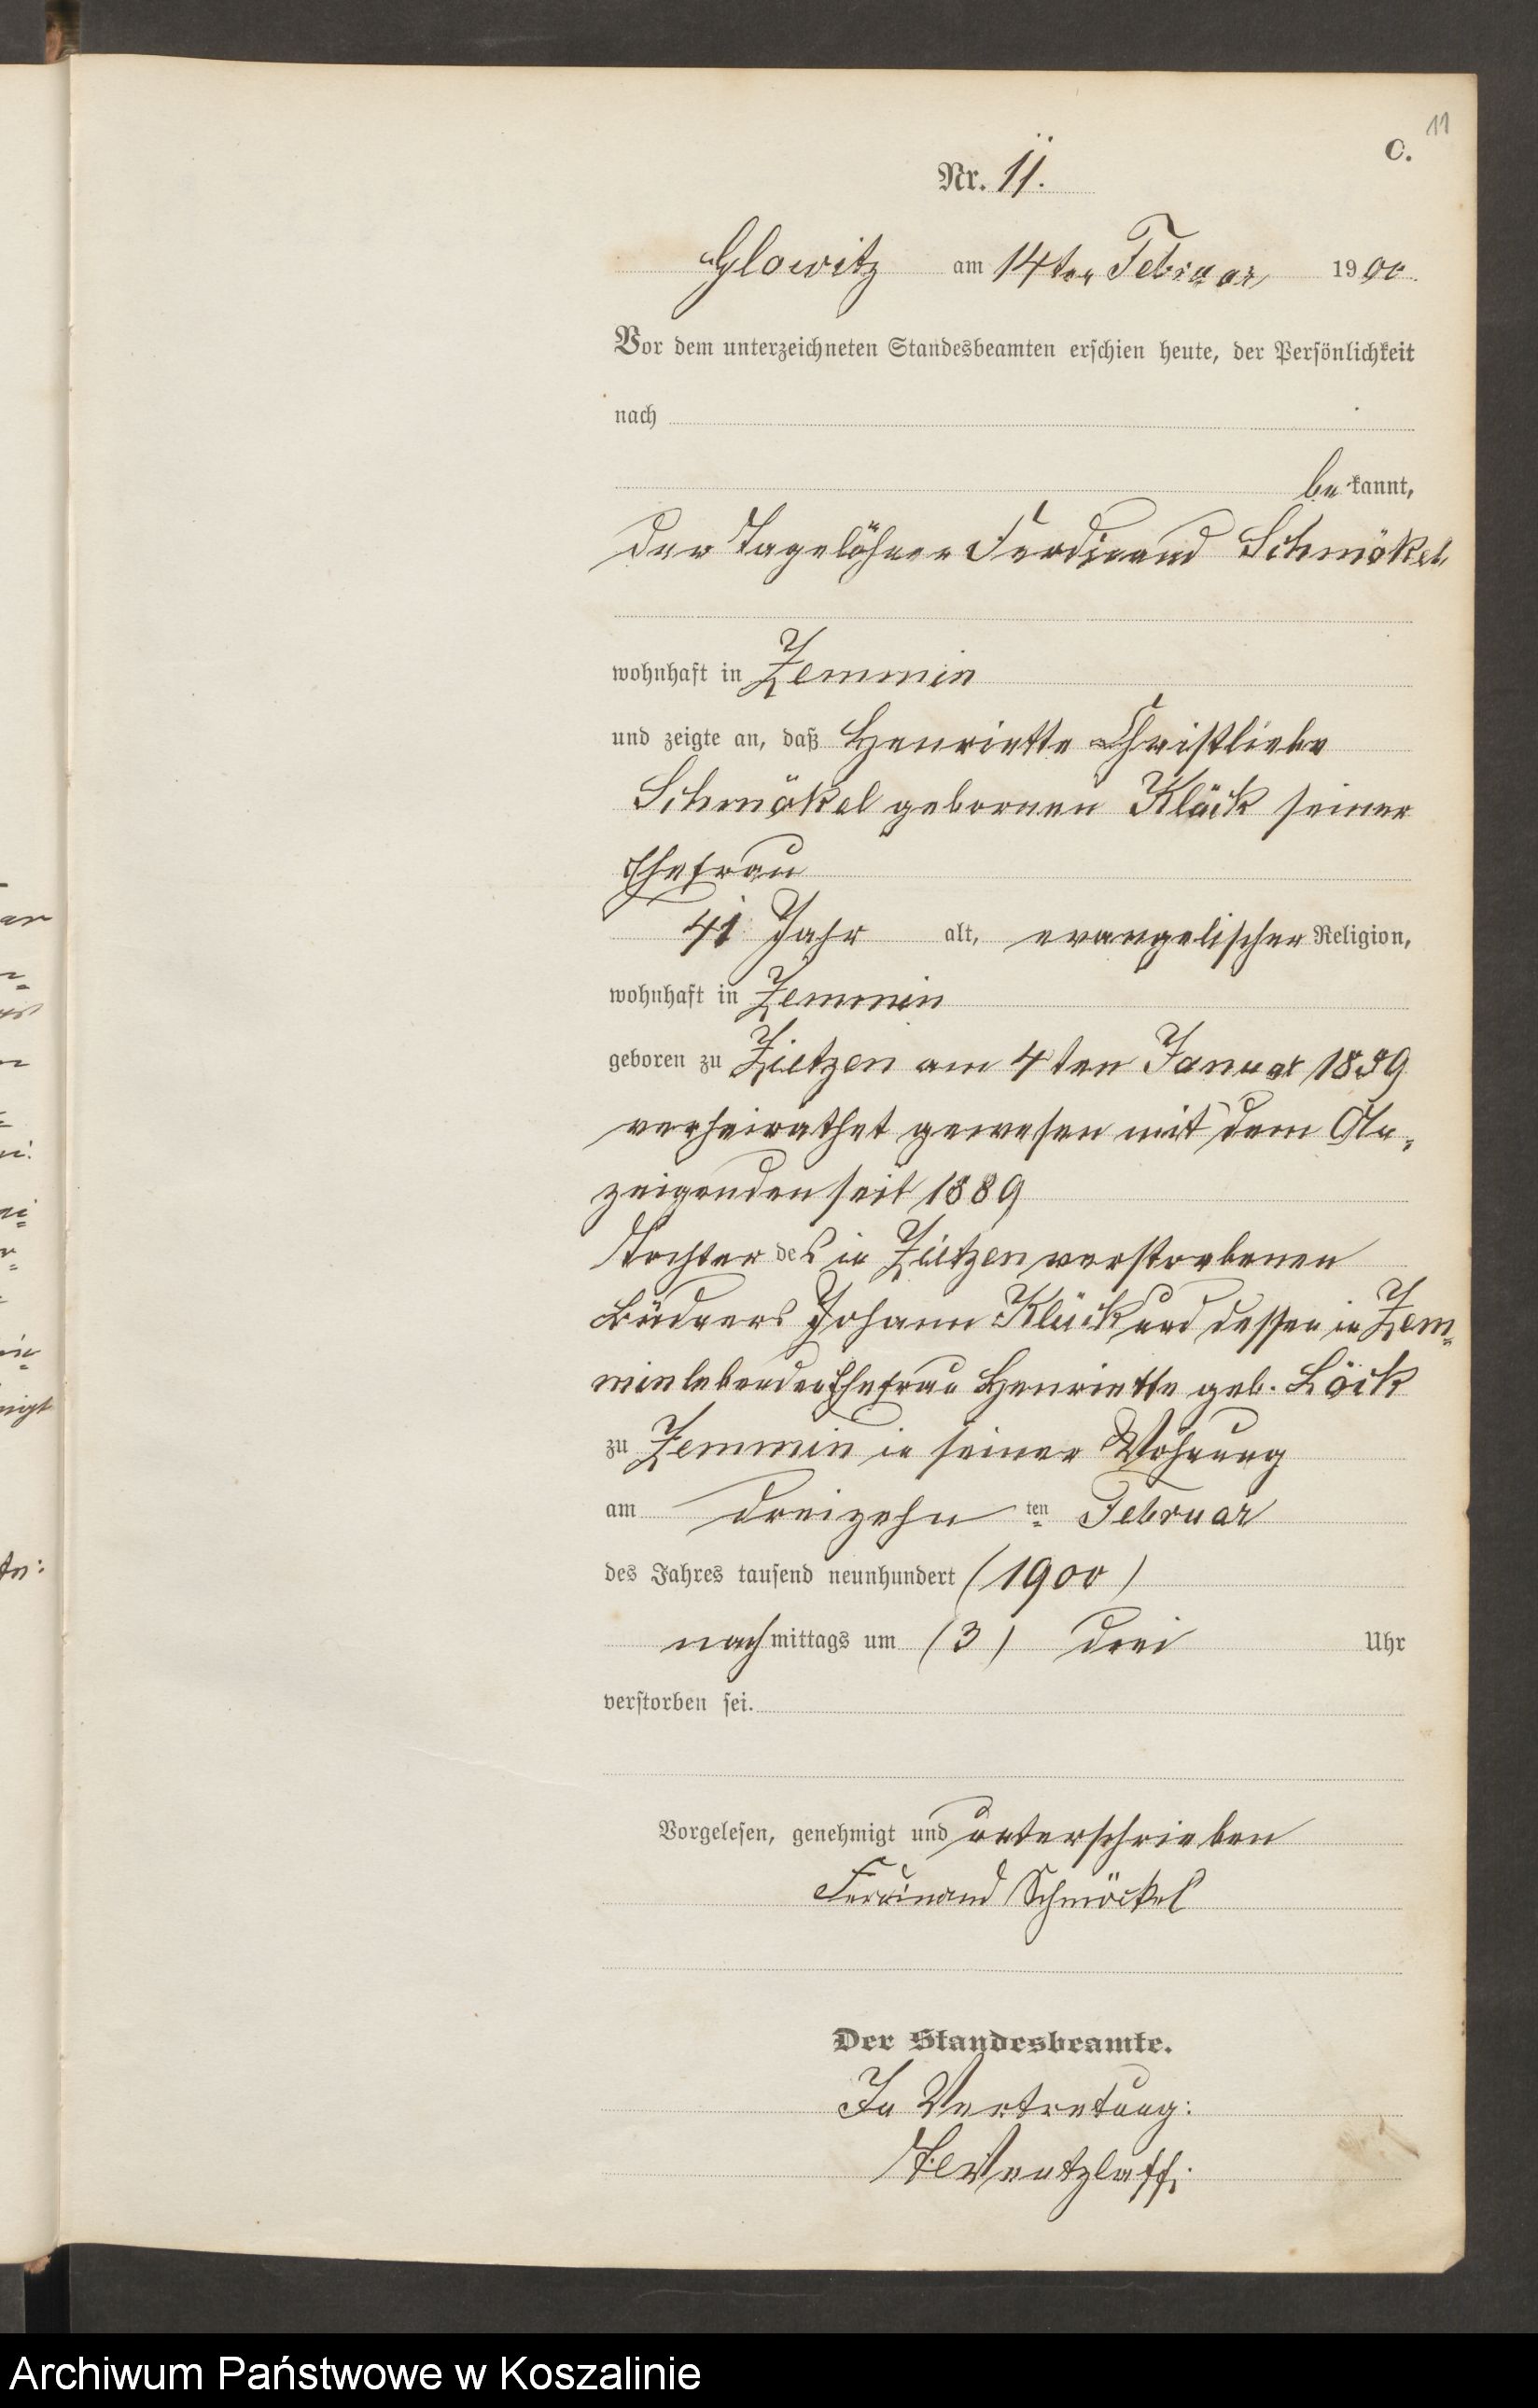 11
C.
Nr. 11.
Glowitz am 14ten Februar 1900.
Vor dem unterzeichneten Standesbeamten erschien heute, der Persönlichkeit
nach
be kannt,
der Tagelöhner Ferdinand Schmökel,
wohnhaft in Zemmin
und zeigte an, daß Henriette Christliebe
Schmökel gebornen Klück seiner
Ehefrau
41 Jahr alt, evangelischer Religion,
wohnhaft in Zemmin
geboren zu Zietzen am 4ten Januar 1859
verheirathet gewesen mit dem An-
zeigenden seit 1889
Tochter des in Zietzen verstorbenen
Büdners Johann Klück und dessen in Zem-
min lebenden Ehefrau Henriette geb. Löck
zu Zemmin in seiner Wohnung
am dreizehn ten Februar
des Jahres tausend neunhundert (1900)
nachmittags um (3) drei Uhr
verstorben sei.
Vorgelesen, genehmigt und unterschrieben
Ferdinand Schmöckel
Der Standesbeamte.
In Vertretung:
Wentzlaff.
Archiwum Państwowe w Koszalinie